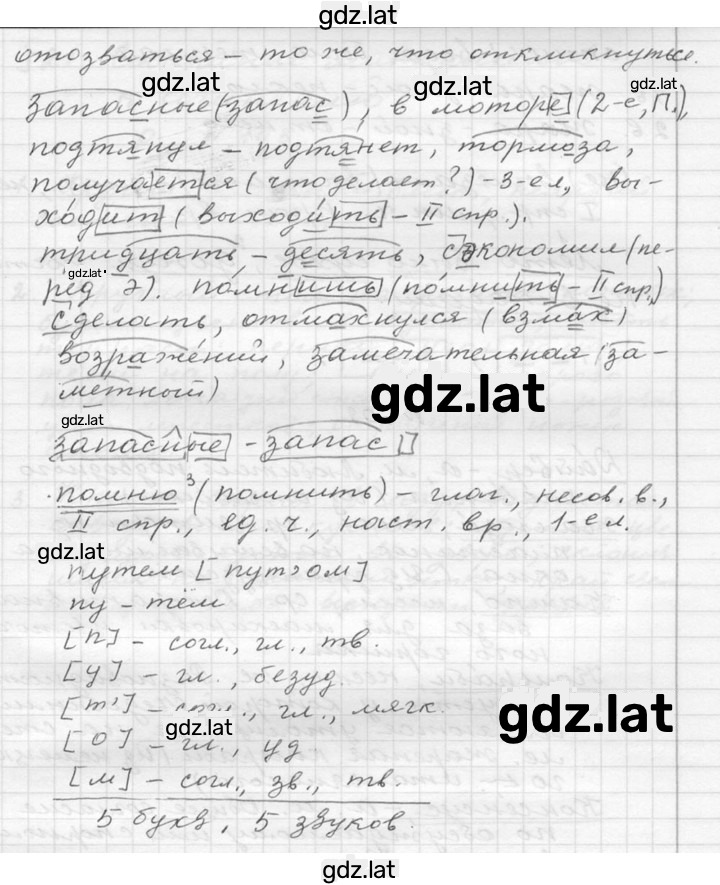 gdz.lat
отозваться – то же, что откликнуться.
gdz.lat
gdz.lat
gdz.lat
запасные (запас), в моторе (2-е, П.),
подтянул – подтянет, тормоза,
получается (что делает?) – 3-е л., вы-
ходит (выходить – II спр.).
тридцать – десять, сэкономил (пе-
gdz.lat
ред э). помнишь (помнить – II спр.)
сделать, отмахнулся (взмах)
возражений, замечательная (за-
метный)
gdz.lat
gdz.lat
запасные – запас
помню³ (помнить) – глаг., несов. в.,
II спр., ед. ч., наст. вр., 1-е л.
gdz.lat
путем [пут'ом]
пу – тём
[п] – согл., гл., тв.
[у] – гл., безуд.
[т'] – согл., гл., мягк.
gdz.lat
gdz.lat
[о] – гл., уд
[м] – согл., зв., тв.
5 букв, 5 звуков.
gdz.lat